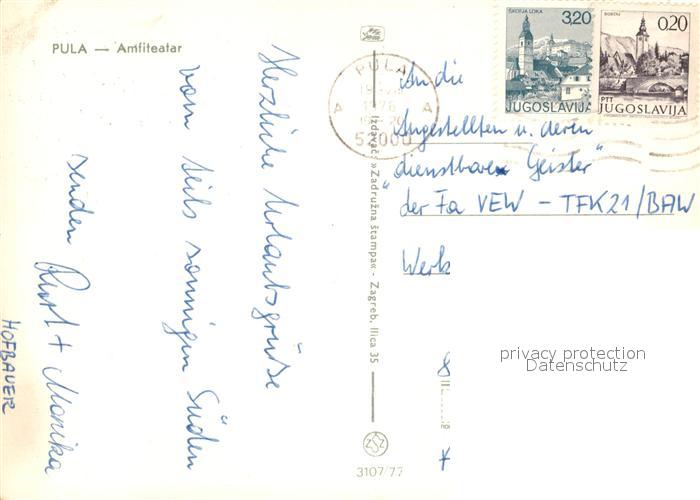 PULA — Amfiteatar
Herzliche Urlaubsgrüße
vom teils sonnigen Süden
senden Kurt + Monika
HOFBAUER
Izdavač: »Zadružna štampa« - Zagreb, Ilica 35
3107/77
PULA
A A
52000
ŠKOFJA LOKA
3,20
JUGOSLAVIJA
0,20
PTT
JUGOSLAVIJA
An die
Angestellten u. deren
"dienstbaren Geister"
der Fa VEW - TFK21/BAW
Werk
8
privacy protection
Datenschutz